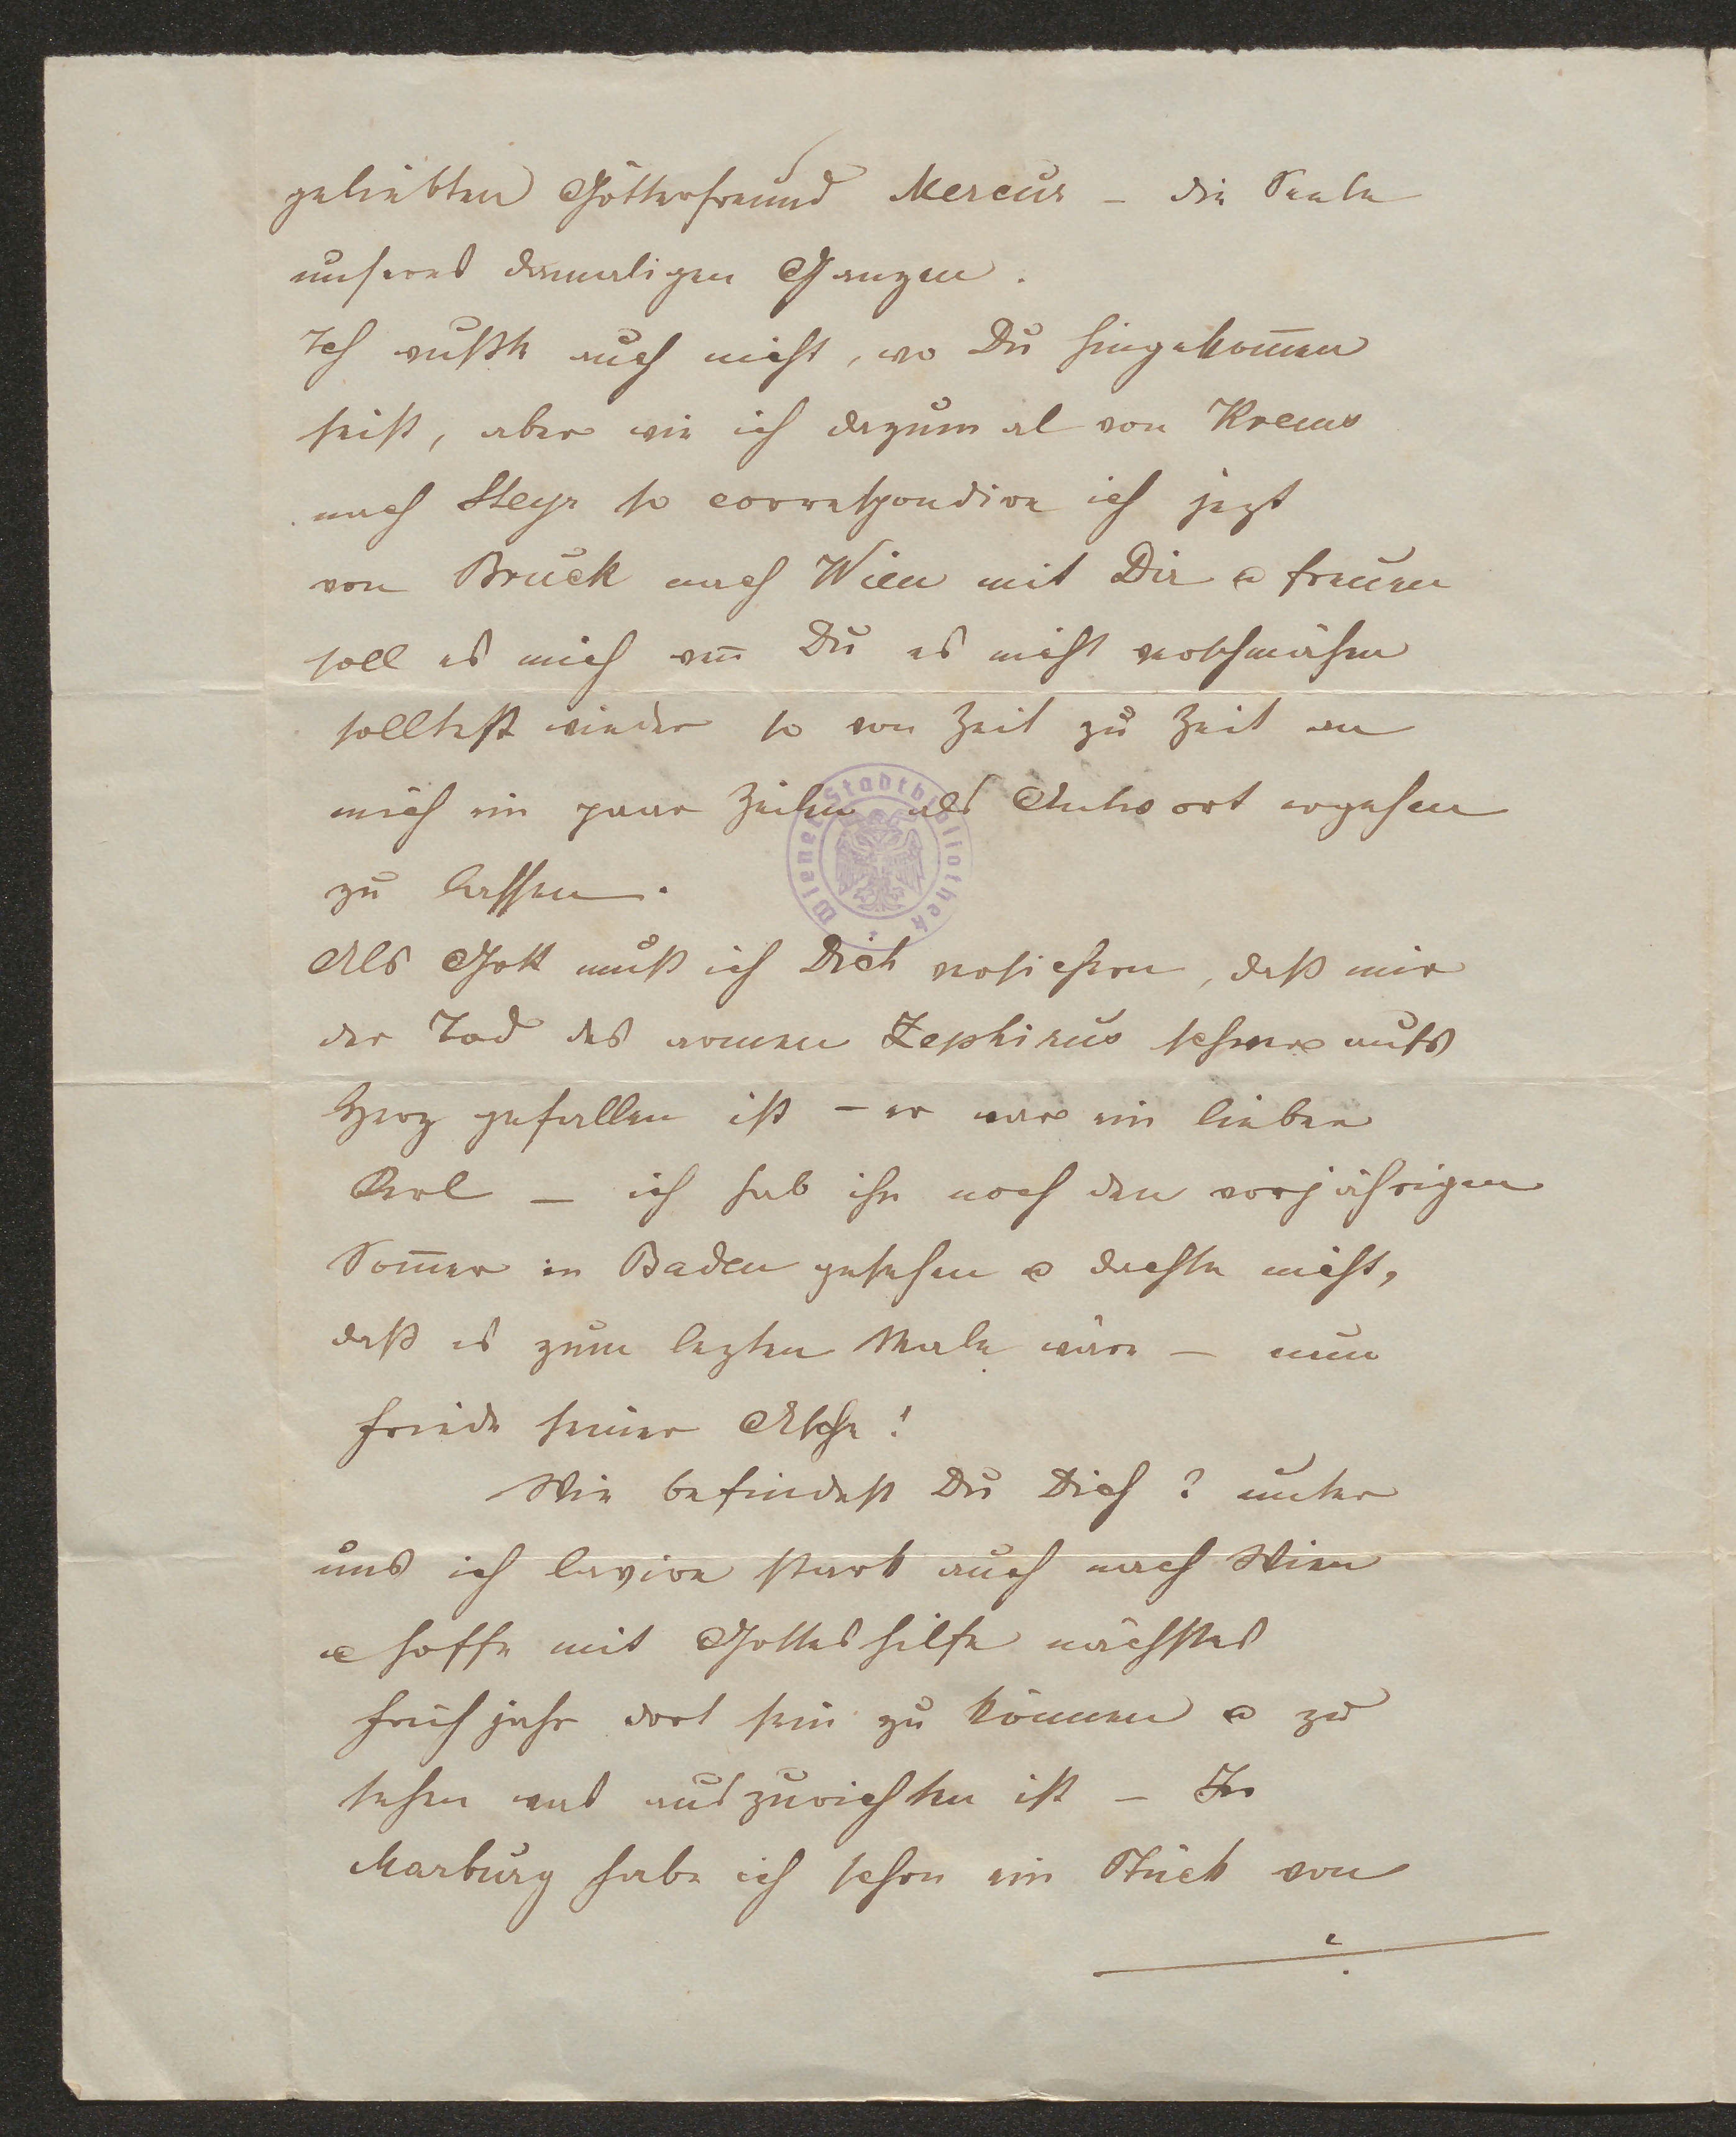 geliebten Götterfreund Mercur – die Seele
unseres damaligen Ganzen.
Ich wußte auch nicht, wo Du hingekom̅en
seist, aber wie ich dazumal von Krems
nach Steyr so correspondire ich jezt
von Bruck nach Wien mit Dir & freuen
soll es mich wen̅ Du es nicht verschmähen
solltest wieder so von Zeit zu Zeit an
mich ein paar Zeilen als Antwort ergehen
zu lassen.
Als Gott muß ich Dich versichern, daß mir
der Tod des armen Zephirus schwer aufs
Herz gefallen ist – er war ein lieber
Kerl – ich hab ihn noch den vorjährigen
Som̅er in Baden gesehen & dachte nicht,
daß es zum lezten Male wäre – nun
Friede seiner Asche!
Wie befindest Du Dich? unter
uns ich lavire stark auch nach Wien
& hoffe mit Gotteshilfe nächstes
Frühjahr dort sein zu können & zu
sehen was auszurichten ist – In
Marburg habe ich schon ein Stück von
./.
Wiener Stadtbibliothek